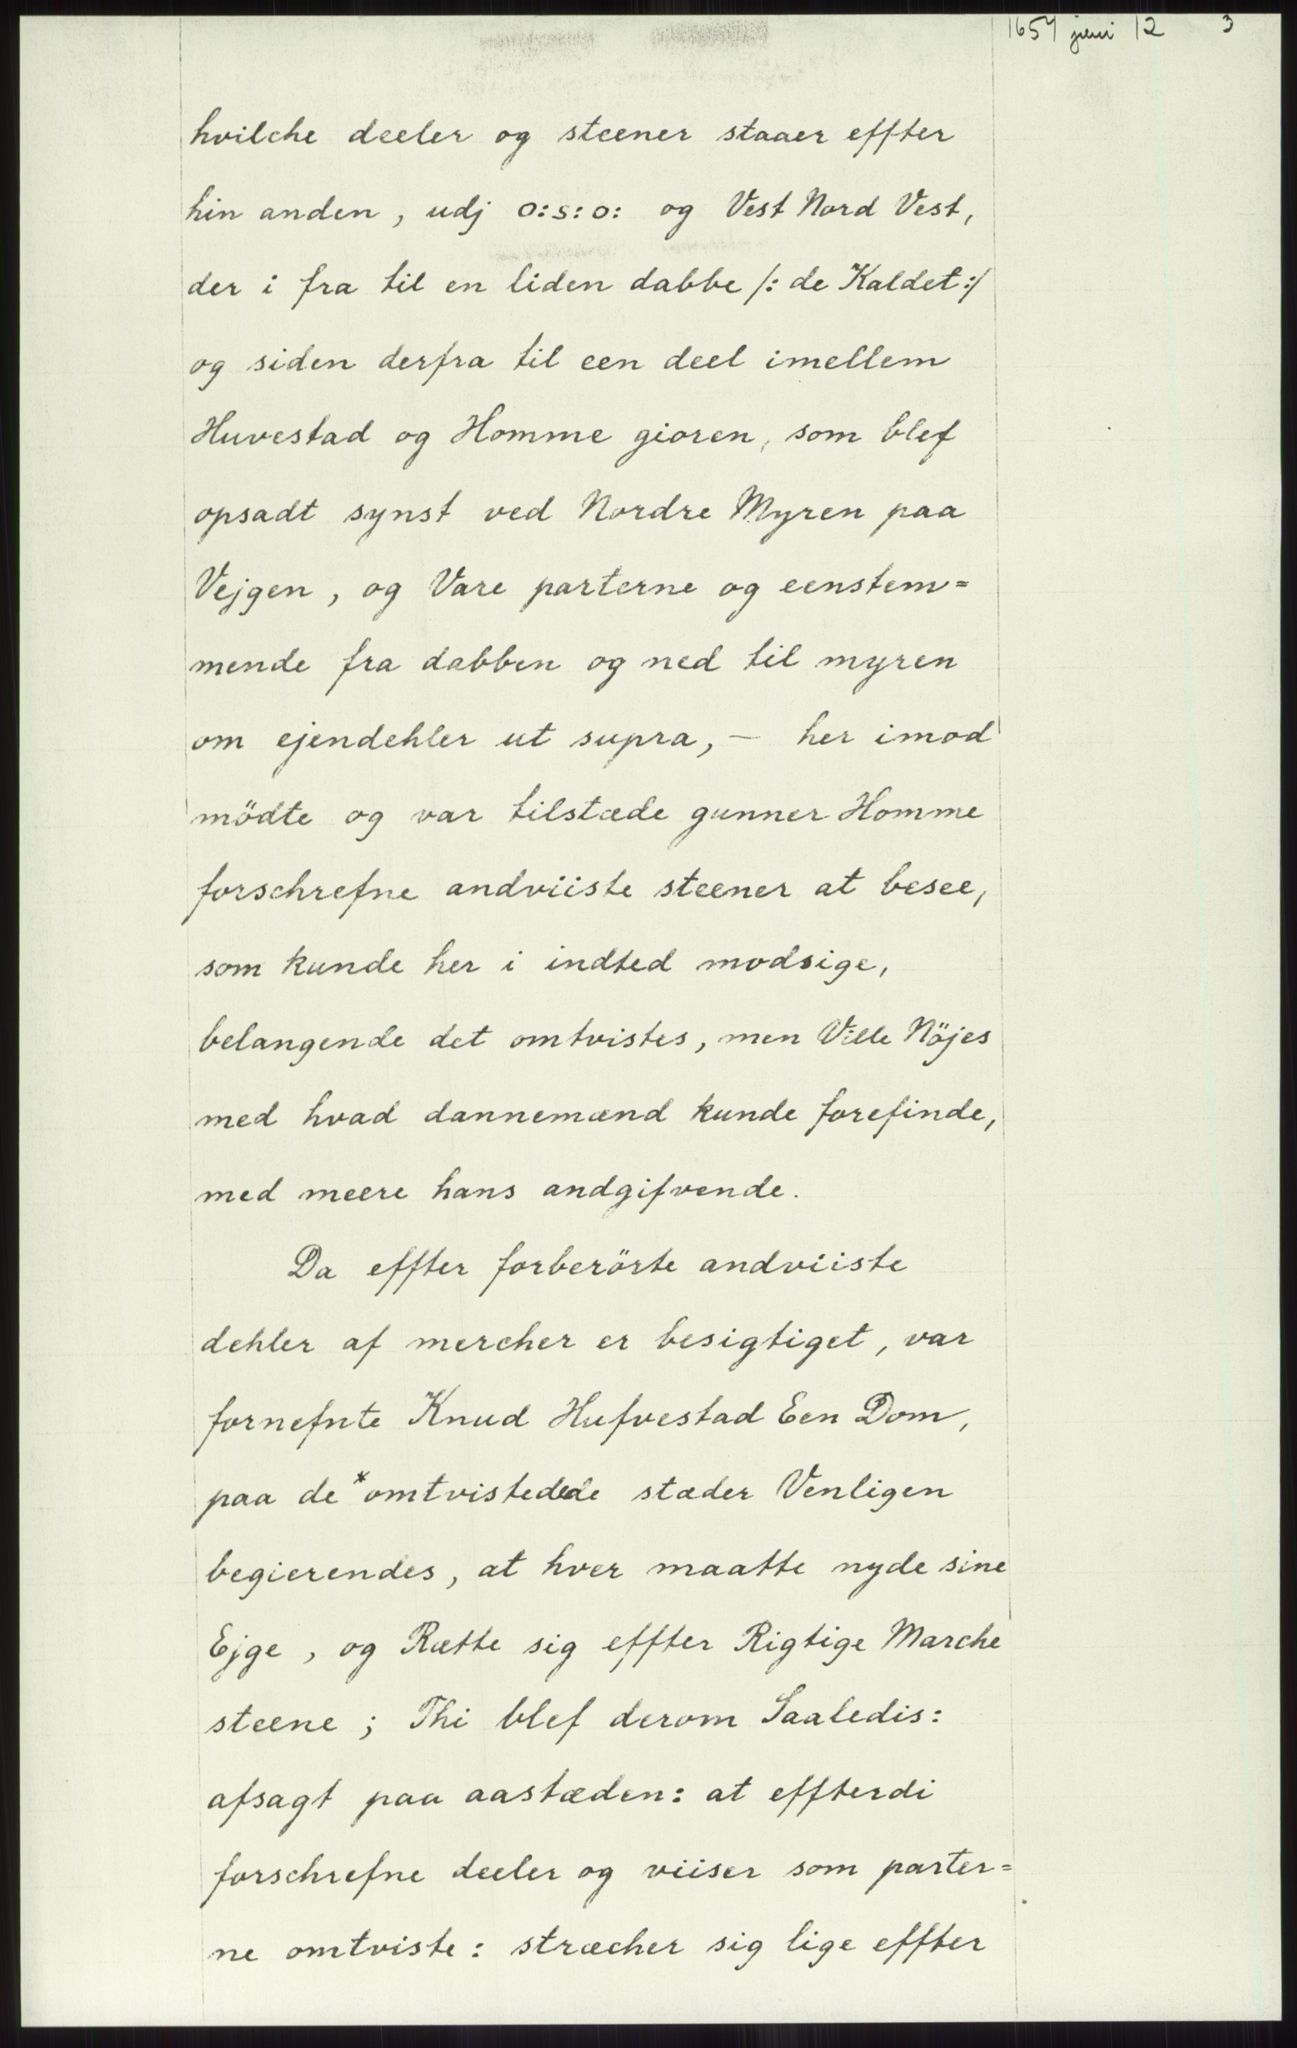 1657 juni 12 3
hvilche deeler og steener staaer effter
hin anden, udj o:s:o: og Vest Nord Vest,
der i fra til en liden dabbe /: de Kaldet :/
og siden derfra til een deel imellem
Huvestad og Homme gioren, som blef
opsadt synst ved Nordre Myren paa
Vejgen, og Vare parterne og eenstem=
mende fra dabben og ned til myren
om ejendehler ut supra, — her imod
mödte og var tilstæde gunner Homme
forschrefne andviiste steener at besee,
som kunde her i indted modsige,
belangende det omtvistes, men Ville Nöjes
med hvad dannemænd kunde forefinde,
med meere hans andgifvende.
Da effter forberörte andviiste
dehler af mercher er besigtiget, var
fornefnte Knud Hufvestad Een Dom,
paa de *omtvistedede stæder Venligen
begierendes, at hver maatte nyde sine
Ejge, og Rætte sig effter Rigtige Marche
steene; Thi blef derom Saaledis:
afsagt paa aastæden: at effterdi
forschrefne deeler og viiser som parter=
ne omtviste: stræcher sig lige effter